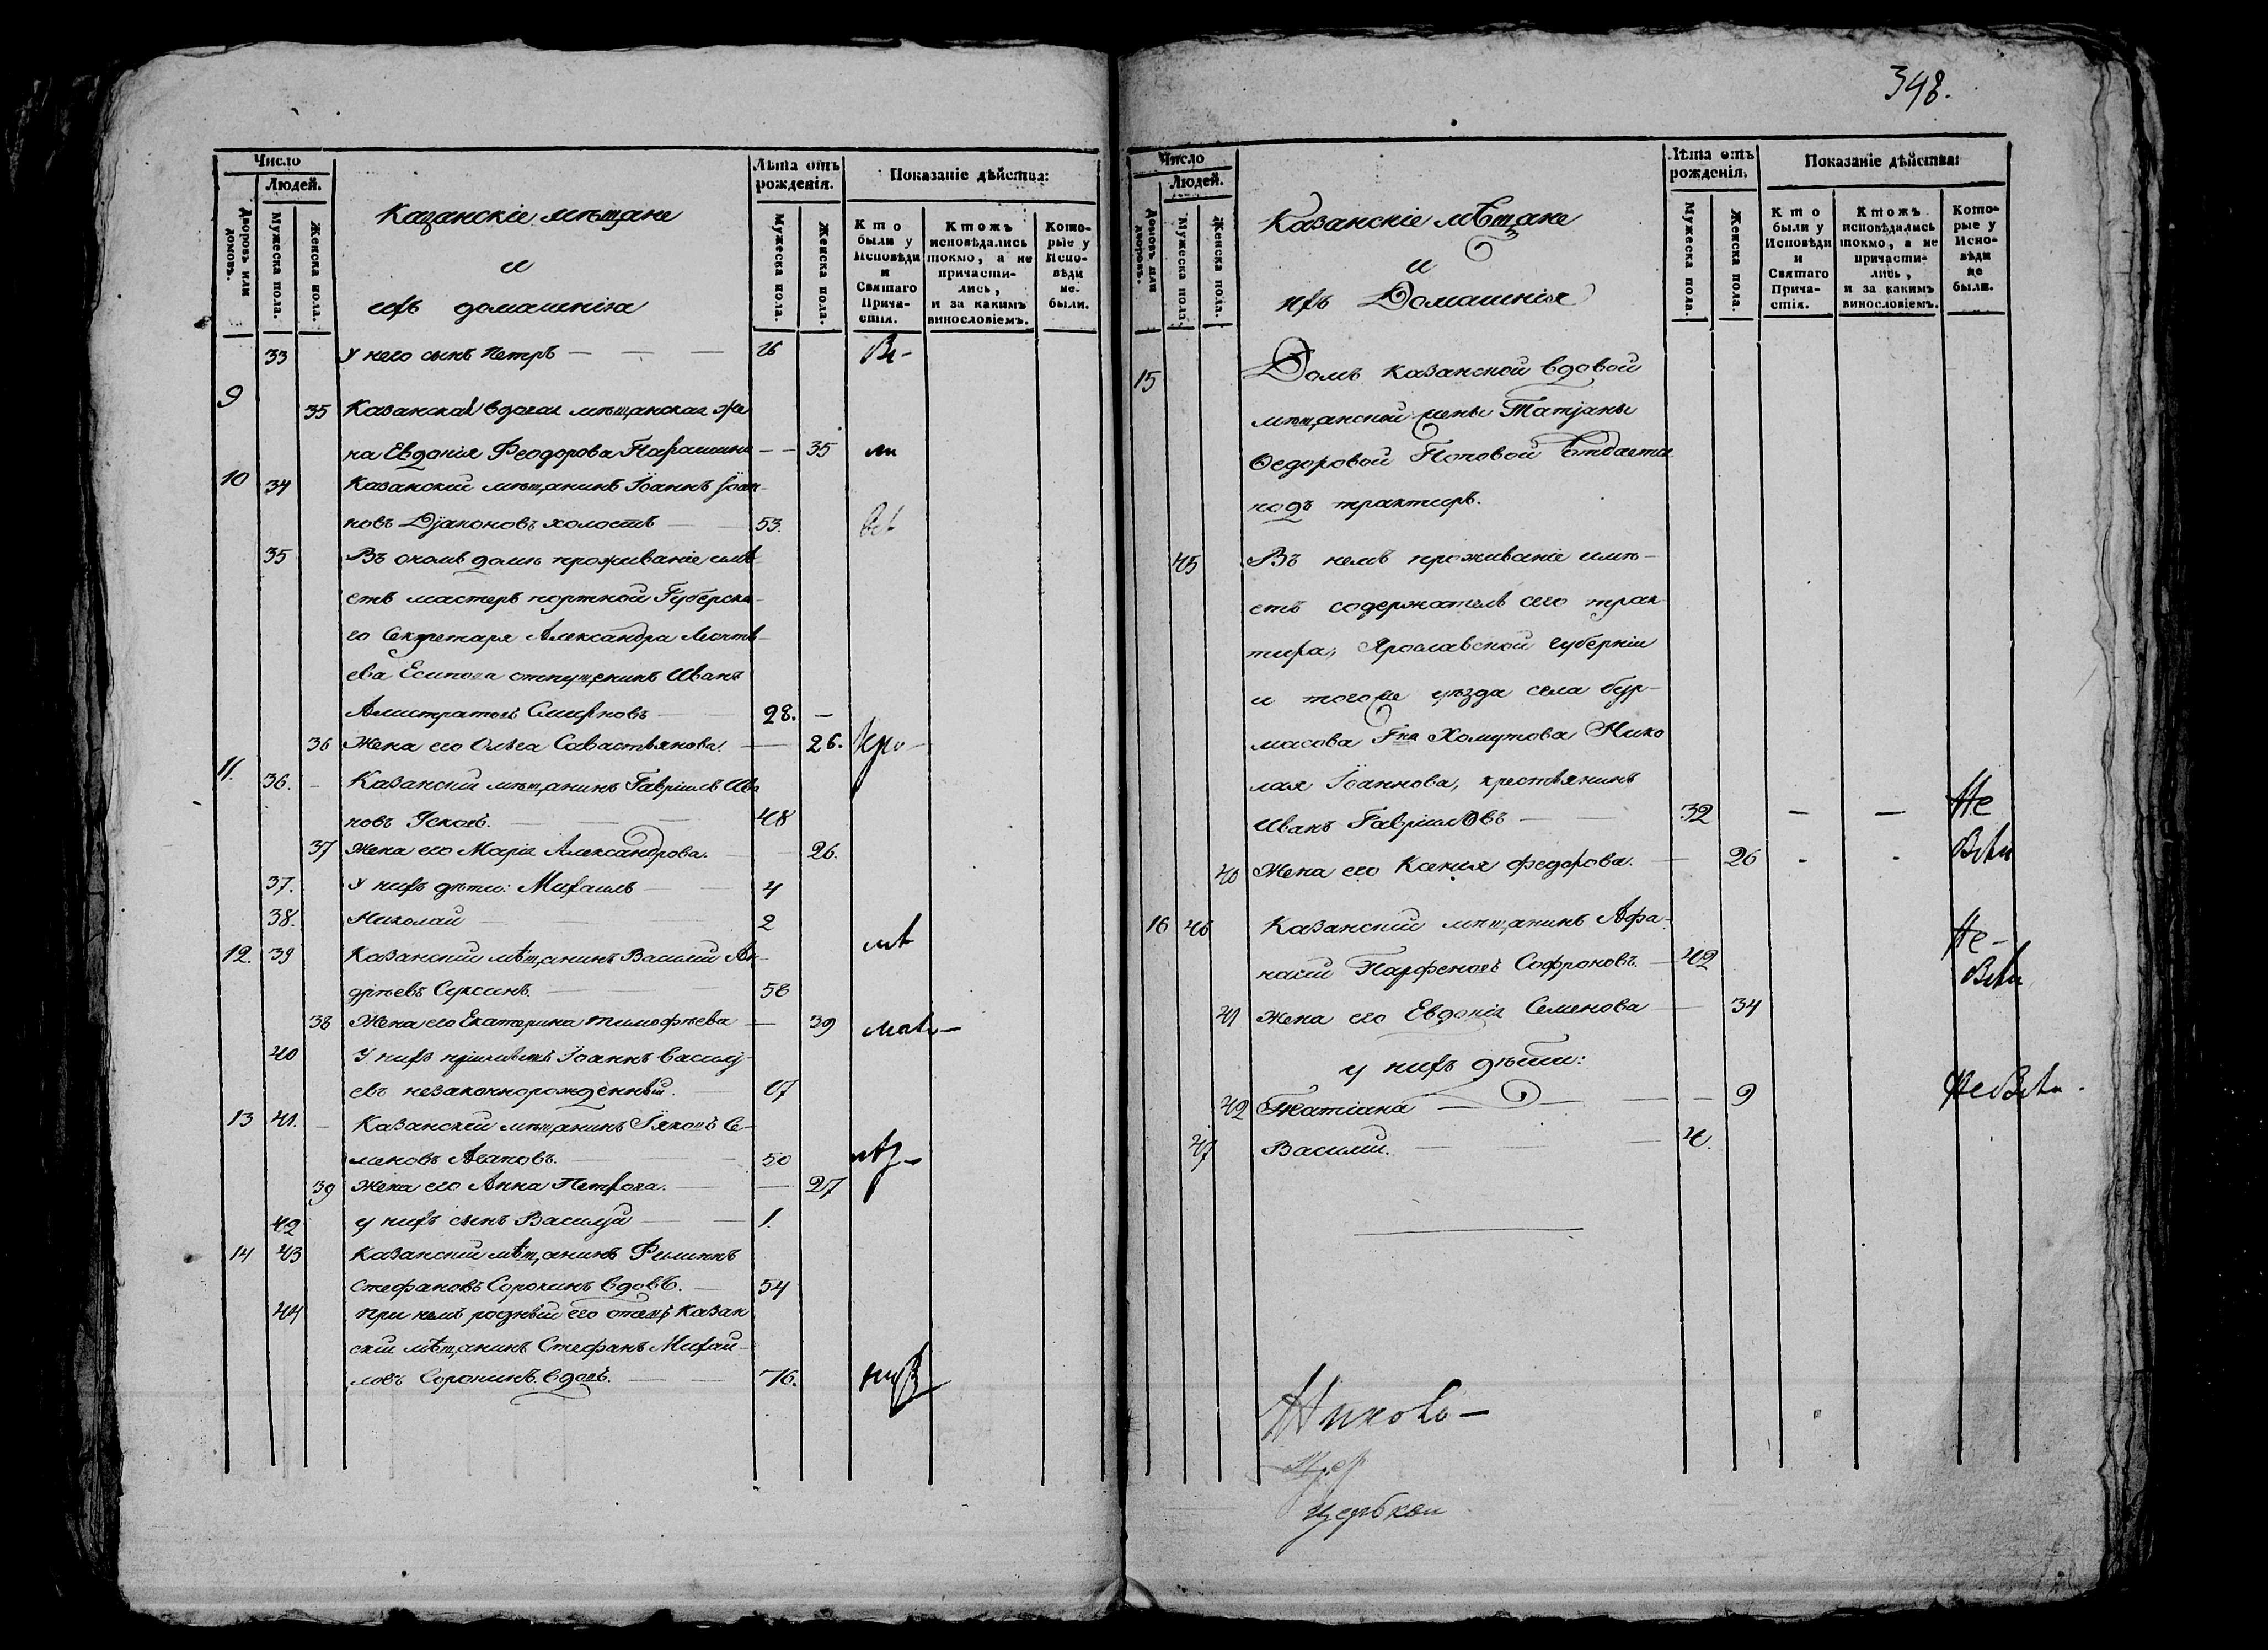 Число
Людей.
Дворовъ или домовъ.
Мужеска пола.
Женска пола.
Казанскіе мѣщане
и
ихъ домашнія
Лѣта отъ рожденія.
Мужеска пола.
Женска пола.
Показаніе дѣйства:
Кто были у Исповѣди и Святаго Причастія.
Ктожъ исповѣдались токмо, а не причастились, и за какимъ винословіемъ.
Которые у Исповѣди не были.
33 У него сынъ Петръ — — — 26
9 35 Казанская вдовая мѣщанская же
на Евдокія Феодорова — — 35
10 34 Казанский мѣщанинъ Іоаннъ Іоан-
новъ Дьяконовъ холостъ — 53.
35 Въ ономъ домѣ проживаніе имѣ-
етъ мастеръ портной Губерска-
го Секретаря Александра Леонть-
ева Есипова отпущенникъ Иванъ
Смирновъ — 28. —
36 Жена его Ольга Савастьянова. — 26.
11. 36. — Казанскій мѣщанинъ Гавріилъ Ива
новъ Усковъ. — — — 48
37 Жена его Марія Александрова. — — 26.
37. У нихъ дѣти: Михаилъ — — 4
38. Николай — — — 2
12. 39 Казанскій мѣщанинъ Василий Ан-
дрѣевъ Суксинъ. — — 58
38 Жена его Екатерина Тимофѣева — 39
40 У нихъ Іоаннъ Василь-
евъ незаконнорожденный. — 07
13 41. — Казанскій мѣщанинъ Іяковъ Се-
меновъ Агаповъ. — — 50
39 Жена его Анна Петрова. — — 27
42 у нихъ сынъ Василій — — 1.
14 43 Казанскій мѣщанинъ Филиппъ
Стефановъ Сорокинъ вдовъ. — 54
44 При немъ родный его отецъ Казан
скій мѣщанинъ Стефанъ Михай-
ловъ Сорокинъ вдовъ. — — 76.
348.
Число
Людей.
Домовъ или дворовъ.
Мужеска пола.
Женска пола.
Казанскіе мѣщане
и
ихъ Домашнія
Лѣта отъ рожденія.
Мужеска пола.
Женска пола.
Показаніе дѣйства:
Кто были у Исповѣди и Святаго Причастія.
Ктожъ исповѣдались токмо, а не причастились, и за какимъ винословіемъ.
Которые у Исповѣди не были.
15 Домъ Казанской вдовой
мѣщанской жены Татьяны
Ѳедоровой Поповой отдается
подъ трактиръ.
45 Въ немъ проживаніе имѣ-
етъ содержатель сего трак-
тира, Ярославской губерніи
и тогоже уѣзда села Бур-
масова Гна Хомутова Нико
лая Іоаннова, крестьянинъ
Иванъ Гавриловъ — — 32 — — Не
40 Жена его Ксения Федорова. — 26 - - были
16 46 Казанский мѣщанинъ Афа-
насій Парфеновъ Софроновъ. — 42 Не-
были
41 Жена его Евдокія Семенова — 34
у нихъ дѣти:
42 Татіана — — — 9 Не были.
47 Василий. — — 4.
Николо-
церкви